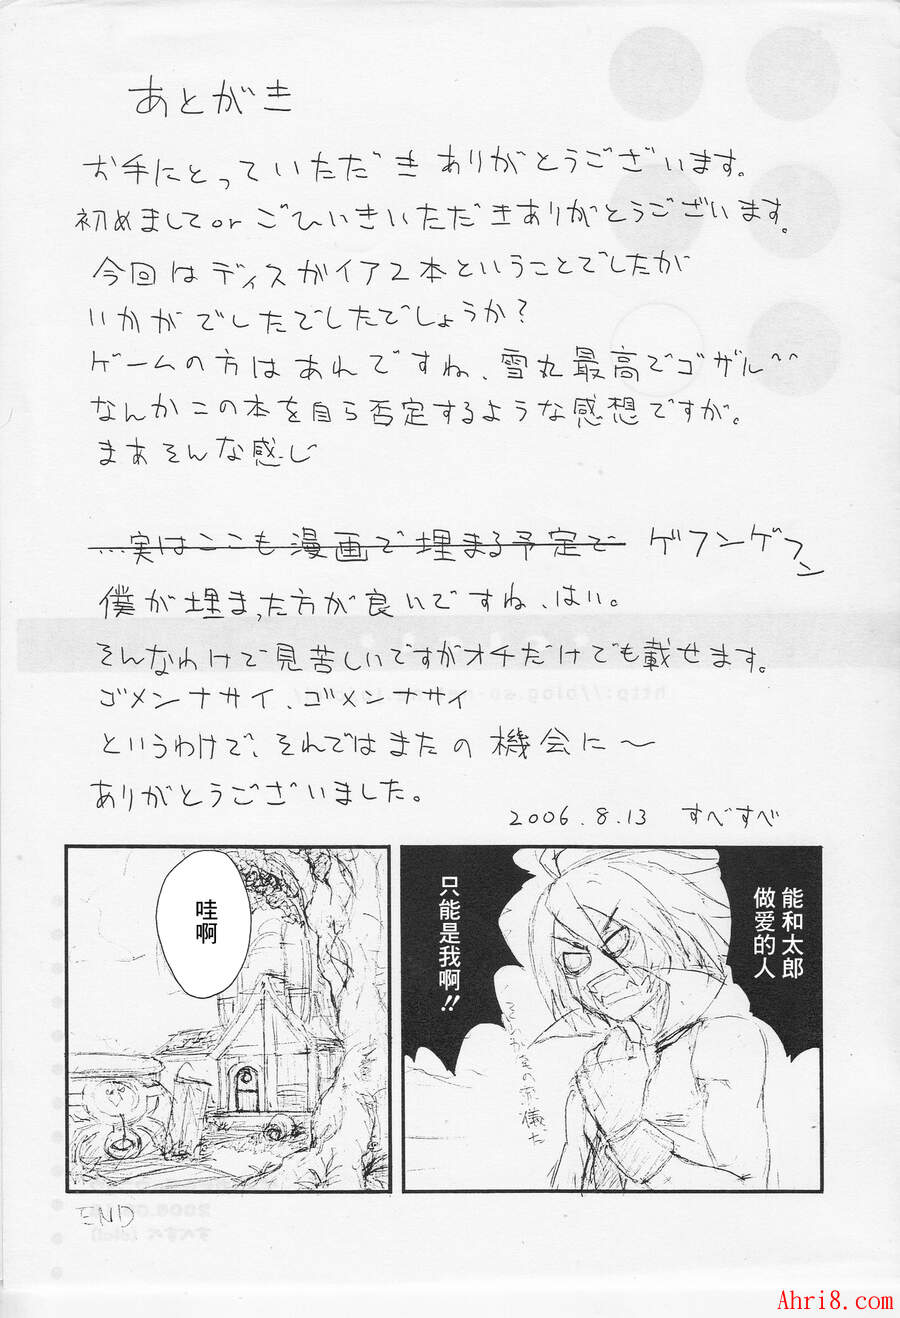 あとがき
お手にとっていただきありがとうございます。
初めましてorごひいきいただきありがとうございます。
今回はディスガイア2本ということでしたが
いかがでしたでしたでしょうか？
ゲームの方はあれですね、雪丸最高でゴザル^^
なんかこの本を自ら否定するような感想ですが。
まあそんな感じ
...実はここも漫画で埋まる予定で ゲフンゲフン
僕が埋まった方が良いですね、はい。
そんなわけで見苦しいですがオチだけでも載せます。
ゴメンナサイ、ゴメンナサイ
というわけで、それではまたの機会に～
ありがとうございました。
2006.8.13 すべすべ
能和太郎
做爱的人
只能是我啊!!
哇啊
END
Ahri8.com